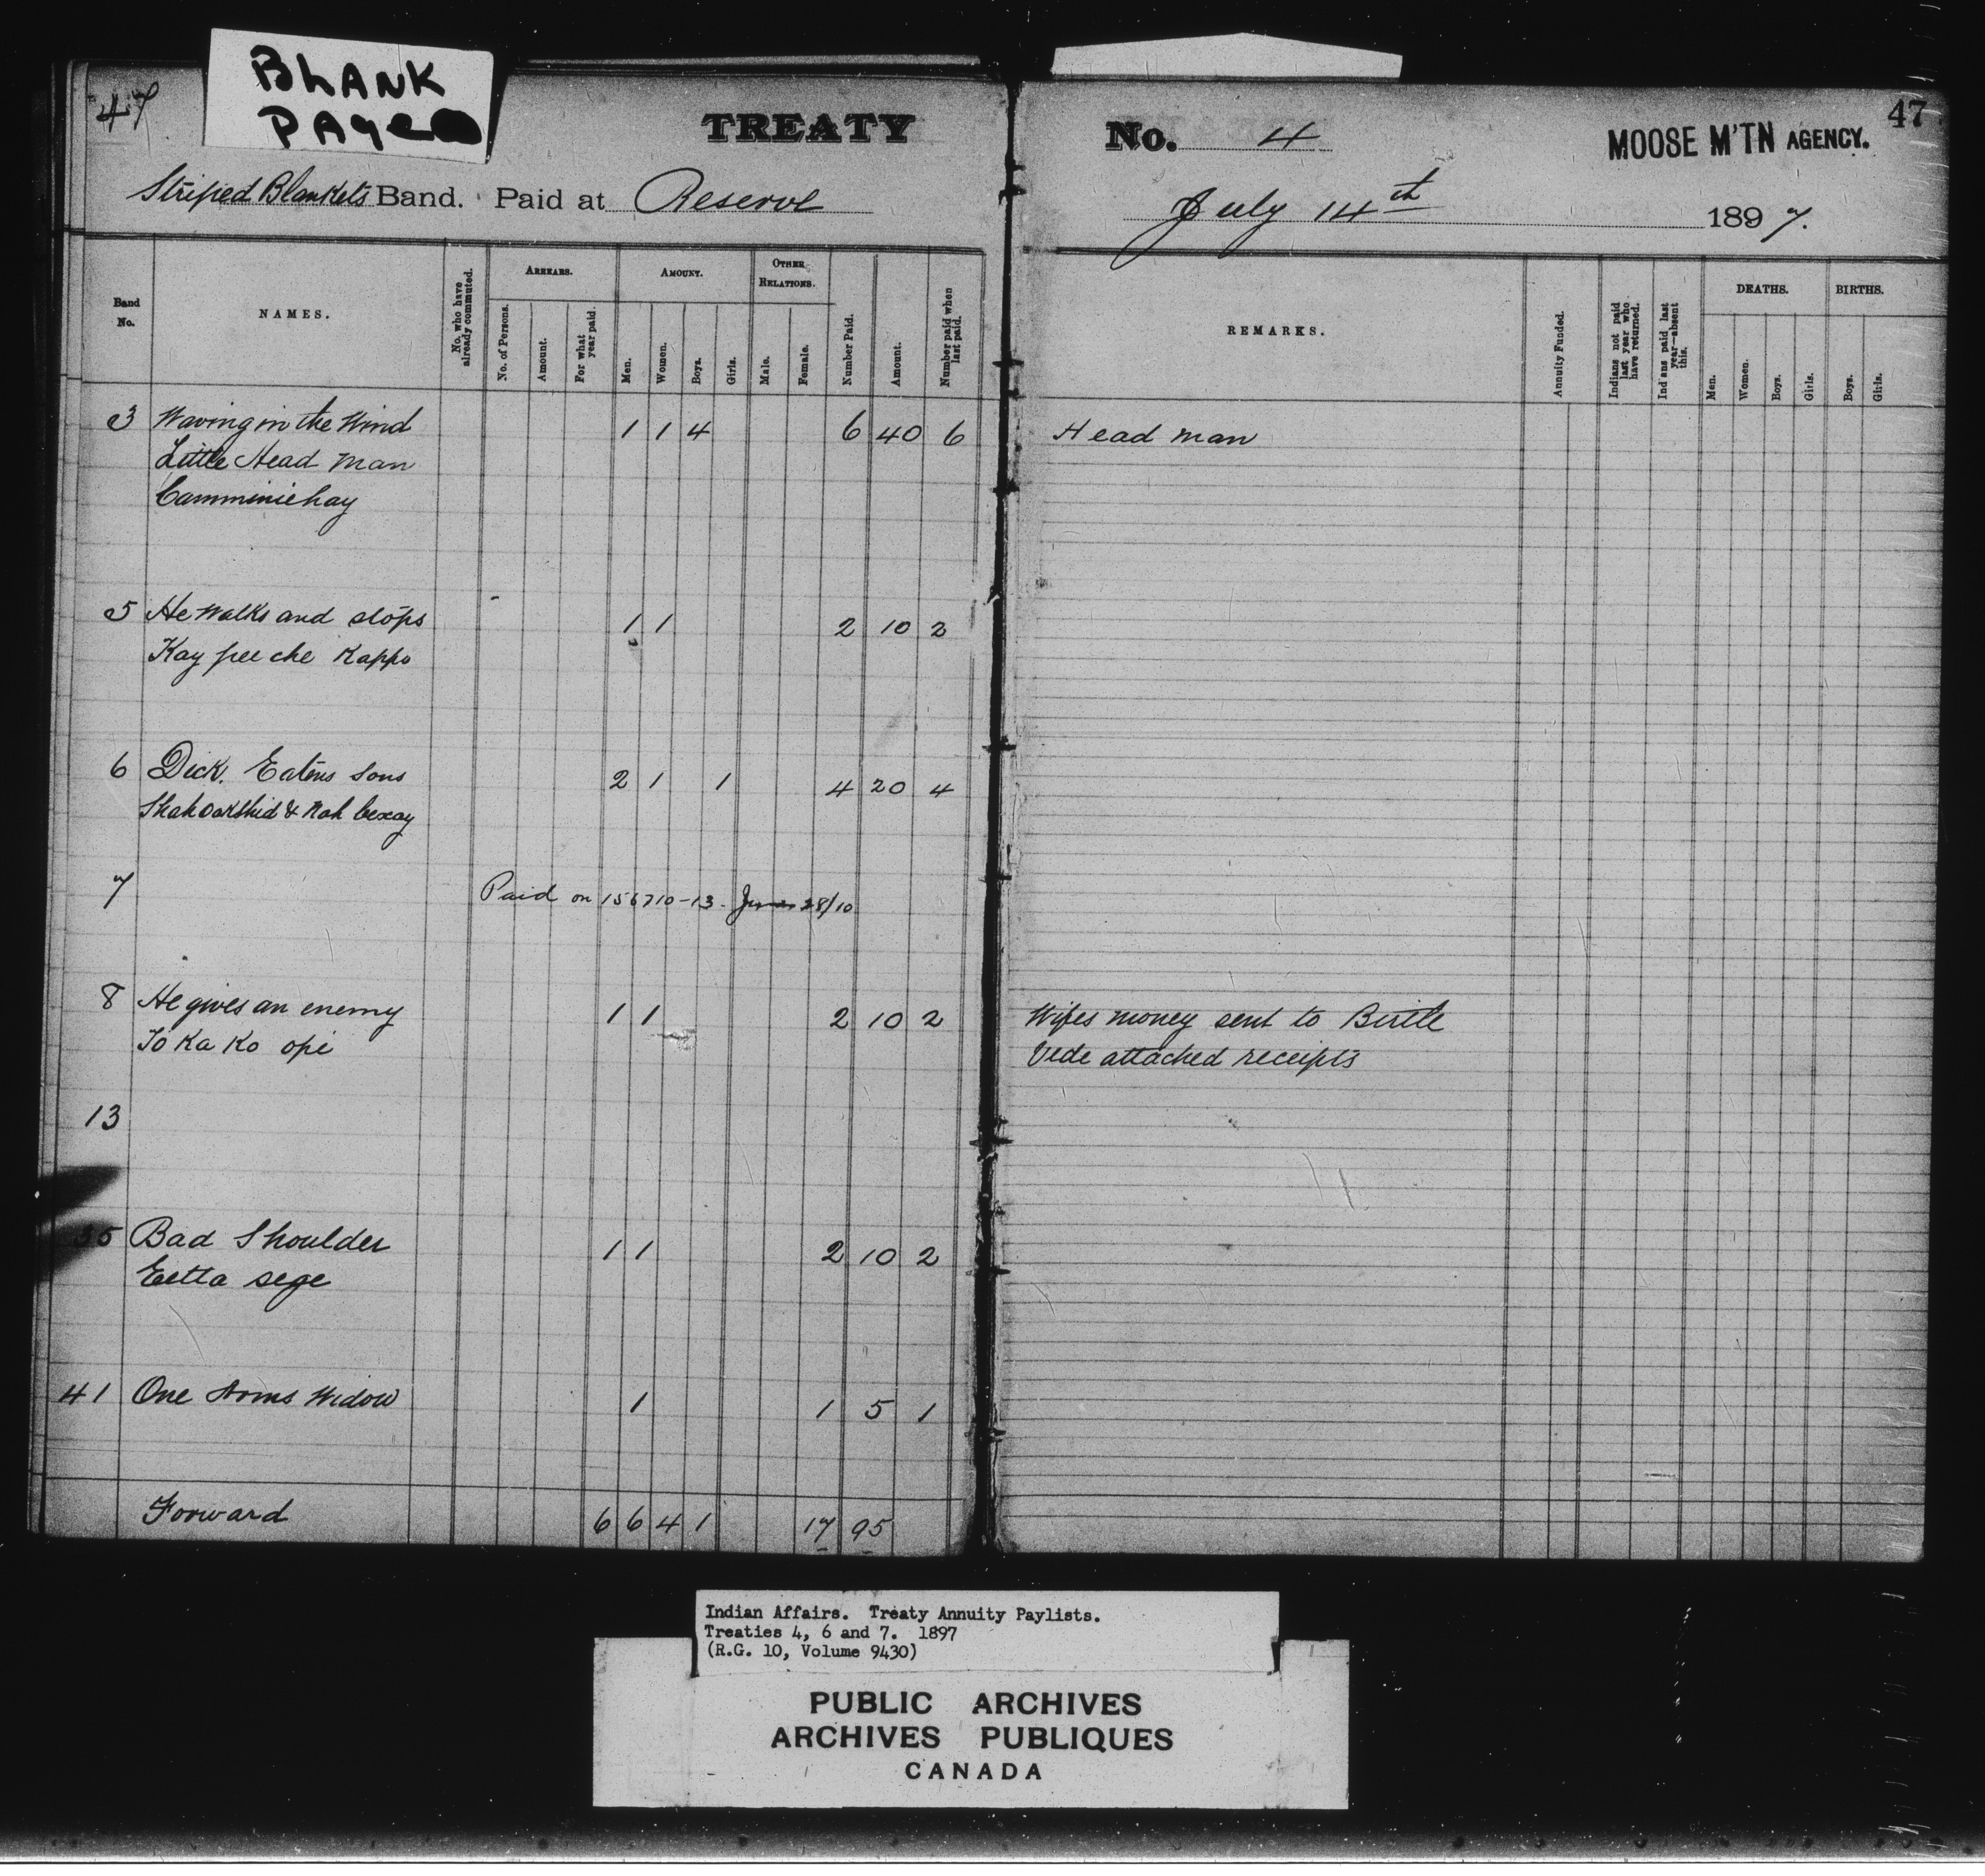 BLANK
PAGE
47
TREATY
No. 4
MOOSE M'TN AGENCY.
47
Striped Blankets Band. Paid at Reserve
July 14th 1897.
Band No.
NAMES.
No. who have already commuted.
ARREARS.
No. of Persons.
Amount.
For what year paid.
AMOUNT.
Men.
Women.
Boys.
Girls.
OTHER RELATIONS.
Male.
Female.
Number Paid.
Amount.
Number paid when last paid.
REMARKS.
Annuity Funded.
Indians not paid last year who have returned.
Indians paid last year—absent this.
DEATHS.
Men.
Women.
Boys.
Girls.
BIRTHS.
Boys.
Girls.
3 Waving in the Wind 1 1 4 6 40 6 Head man
Little Head Man
Camminiehay
5 He Walks and stops 1 1 2 10 2
Kay pee che Kappo
6 Dick. Eatens sons 2 1 1 4 20 4
7 Paid on 156710-13 28/10
8 He gives an enemy 1 1 2 10 2 Wifes money sent to Birtle
To Ka Ko opi Vide attached receipts
13
35 Bad Shoulder 1 1 2 10 2
Eetta sege
41 One Arms Widow 1 1 5 1
Forward 6 6 4 1 17 95
Indian Affairs. Treaty Annuity Paylists.
Treaties 4, 6 and 7. 1897
(R.G. 10, Volume 9430)
PUBLIC ARCHIVES
ARCHIVES PUBLIQUES
CANADA